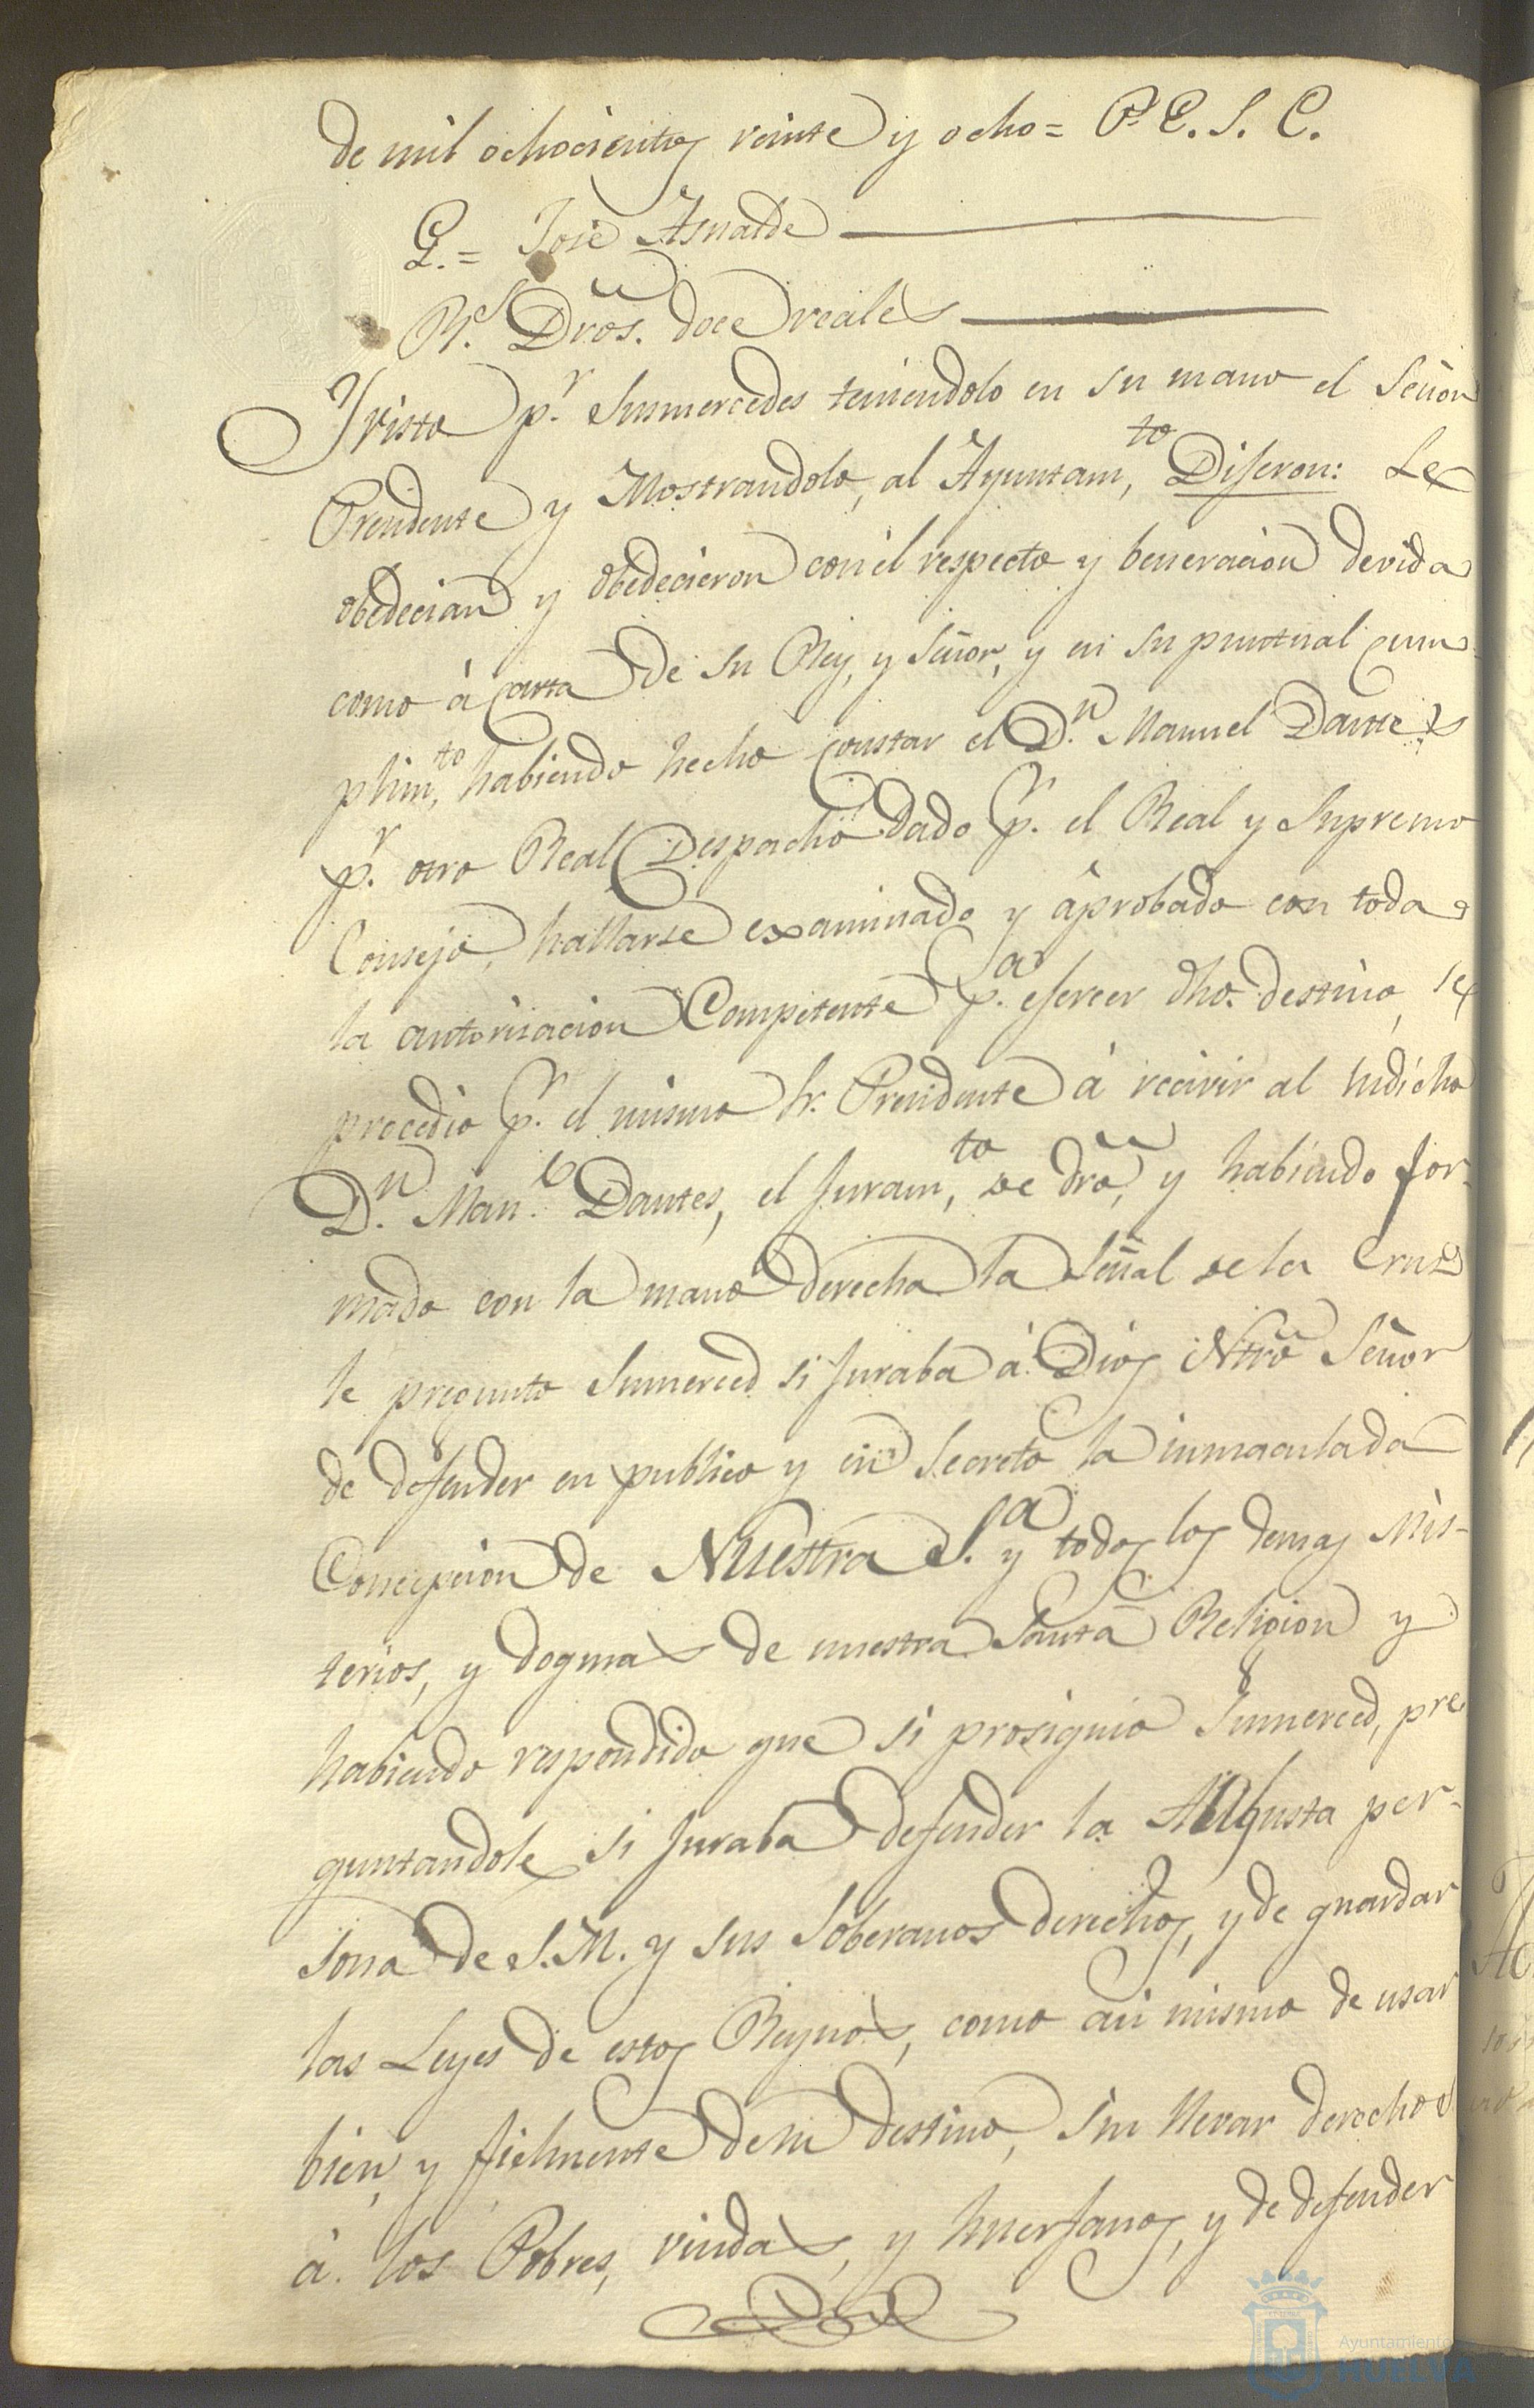 de mil ochocientos veinte y ocho = P.r E. S. C.
G. = José Asnalde
R.s Dr̃os. doce reales
Y visto p.r Sumercedes teniendolo en su mano el Señor
Presidente y Mostrandolo, al Ayuntam.to Diseron: Le
obedecian y obedecieron con el respecto y beneracion devida
como à Carta de su Rey, y Señor, y en su puntual cum-
plim.to, habiendo hecho constar el D.n Manuel Dantes
p.r otro Real Despacho dado p.r el Real y Supremo
Consejo, hallarse examinado y aprobado con toda
la autorisacion Competente p.a eserser dho. destino, se
procedio p.r el mismo Sr. Presidente á recivir al susdicho
D.n Man.l Dantes, el Juram.to de dr̃o, y habiendo for-
mado con la mano derecha la señal de la Cruz
le pregunto Sumerced si Juraba á Dios Ntr̃o Señor
de defender en publico y en secreto la inmaculada
Concepcion de Nuestra S.a y todos los demas Mis-
terios, y dogmas de nuestra Santa Religion y
habiendo respondido que si prosiguio Sumerced, pre
guntandole si Juraba defender la Augusta per-
sona de S.M. y sus Soberanos derechos, y de guardar
las Leyes de estos Reynos, como asi mismo de usar
bien, y fielmente de su destino, sin llevar derechos
á los Pobres, viudas, y huerfanos, y de defender
Ayuntamiento
HUELVA